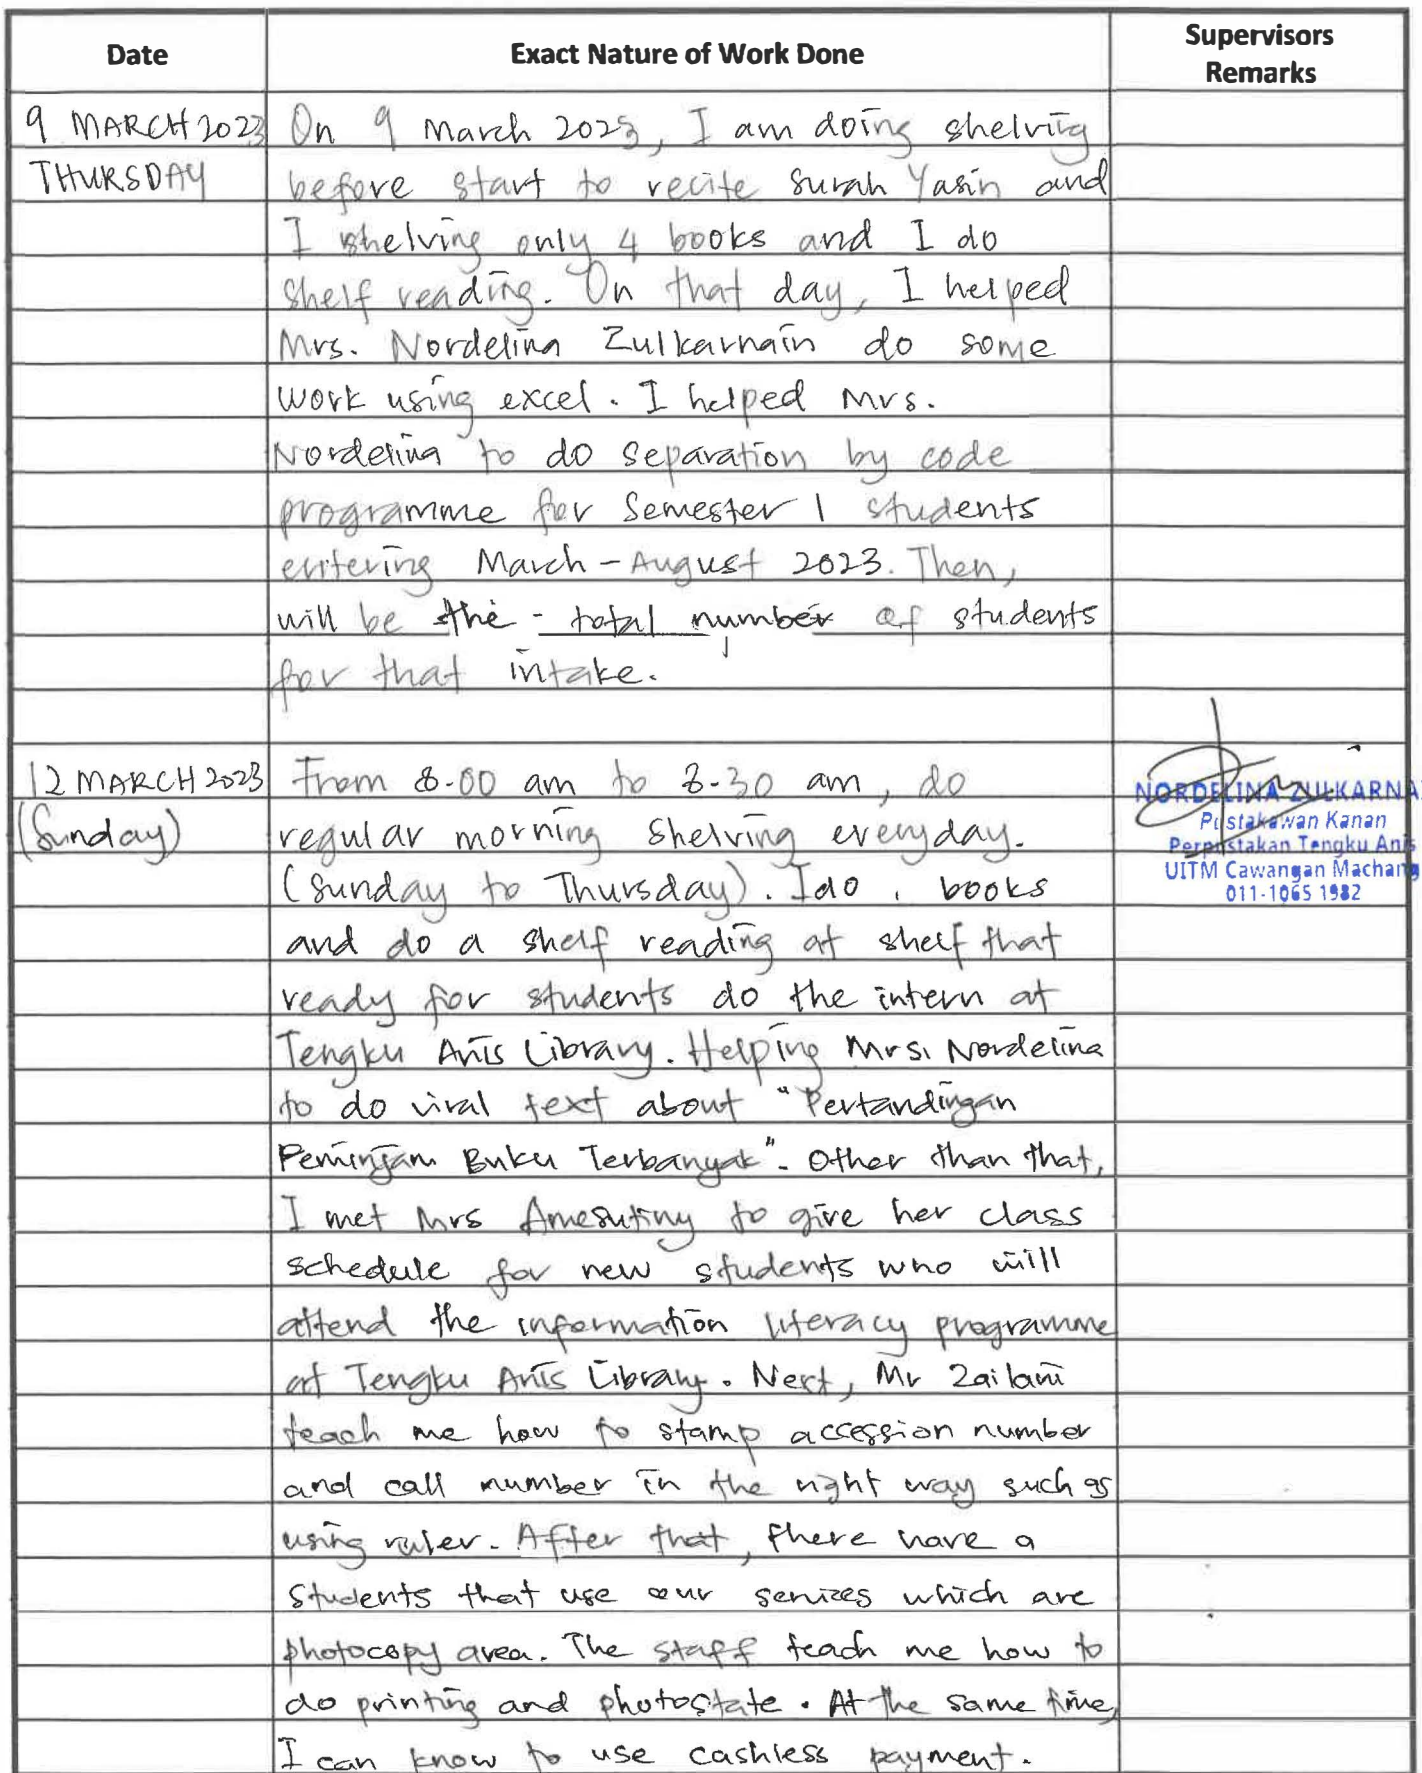 Date
Exact Nature of Work Done
Supervisors
Remarks
9 MARCH 2023
THURSDAY
On 9 March 2023, I am doing shelving
before start to recite Surah Yasin and
I shelving only 4 books and I do
shelf reading. On that day, I helped
Mrs. Nordelina Zulkarnain do some
work using excel. I helped Mrs.
Nordelina to do separation by code
programme for Semester 1 students
entering March - August 2023. Then,
will be the - total number of students
for that intake.
12 MARCH 2023
(Sunday)
From 8.00 am to 8.30 am, do
regular morning shelving everyday.
(Sunday to Thursday). I do , books
and do a shelf reading at shelf that
ready for students do the intern at
Tengku Anis Library. Helping Mrs. Nordelina
to do viral text about "Pertandingan
Peminjam Buku Terbanyak". Other than that,
I met Mrs Amesutiny to give her class
schedule for new students who will
attend the information literacy programme
at Tengku Anis Library. Next, Mr Zailani
teach me how to stamp accession number
and call number in the right way such as
using ruler. After that, there have a
students that use our services which are
photocopy area. The staff teach me how to
do printing and photostate. At the same time,
I can know to use cashless payment.
NORDELINA ZULKARNAI
Pustakawan Kanan
Perpustakan Tengku Anis
UITM Cawangan Machang
011-1065 1982